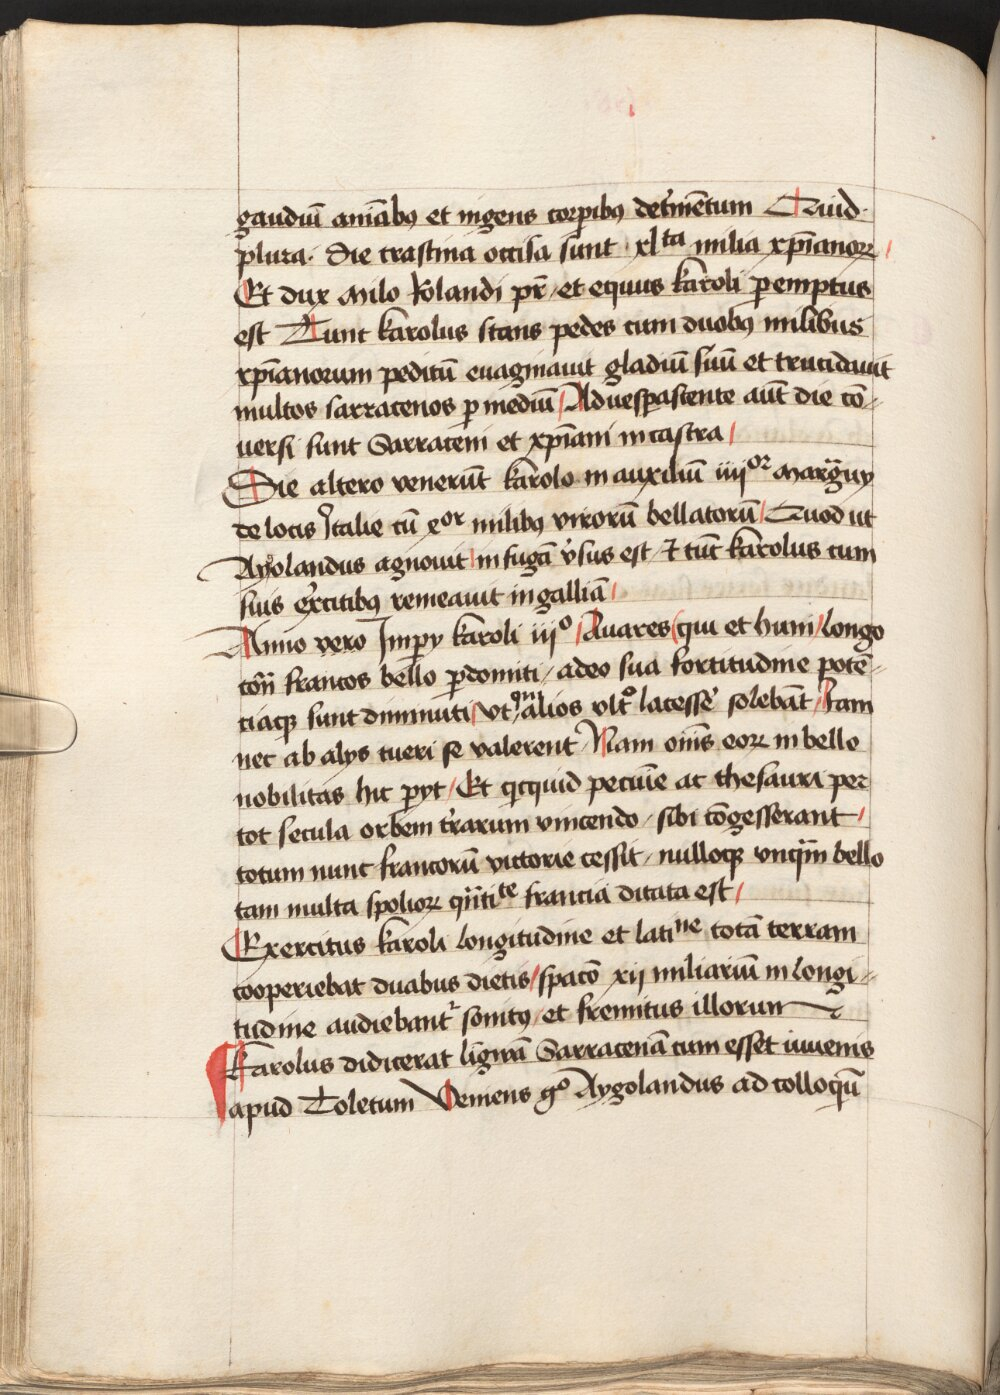 gaudiū aniābꝯ et ingens corꝑibꝯ det'mētum Quid·
plura· Die crastina occisa sunt · xl ta milia xp̄ianoꝝ /
Et dux Milo Rolandi pr̄ / et equus karoli ꝑemptus
est Tunc karolus stans pedes cum duobꝯ milibus
xp̄ianorum peditū euaginauit gladiū suū et trucidauit
multos sarracenos ꝑ mediū / Aduesꝑascente aūt die cō-
uersi sunt Sarraceni et xp̄iani in castra /
Die altero venerūt karolo in auxiliū iiij or Margūy
de locis Italie cū x or milibꝯ virorū bellatorū / Quod ut
Aygolandus agnouit / in fugā v'sus est / ⁊ tūc karolus cum
suis ex'citibꝯ remeauit in galliā /
Anno vero Imꝑy karoli iij o / Auares (qui et huni / longo
cōn francos bello ꝑdomiti / adeo sua fortitudine potē-
ciaqꝫ sunt diminuti / vt / qui alios vltͦ lacesse' solebāt / Iam
nec ab alys tueri se valerent / Nam om̄is eoꝝ in bello
nobilitas hic ꝑyt / Et qͥcquid pecuīe ac thesauri per
tot secula orbem t'rarum vincendo / sibi cōgesserant /
totum nunc francorū victorie cessit / nulloqꝫ vnqͣm bello
tam multa spolioꝝ qn̄ti te francia ditata est /
Exercitus karoli longitudine et lati ne totā terram
cooperiebat duabus dietis / spacō xij miliariū in longi-
tudine audiebantʳ sonitꝯ / et fremitus illorum
Karolus didicerat ligwā Sarracenā cum esset iuuenis
apud Toletum Veniens gͦ Aygolandus ad colloqū